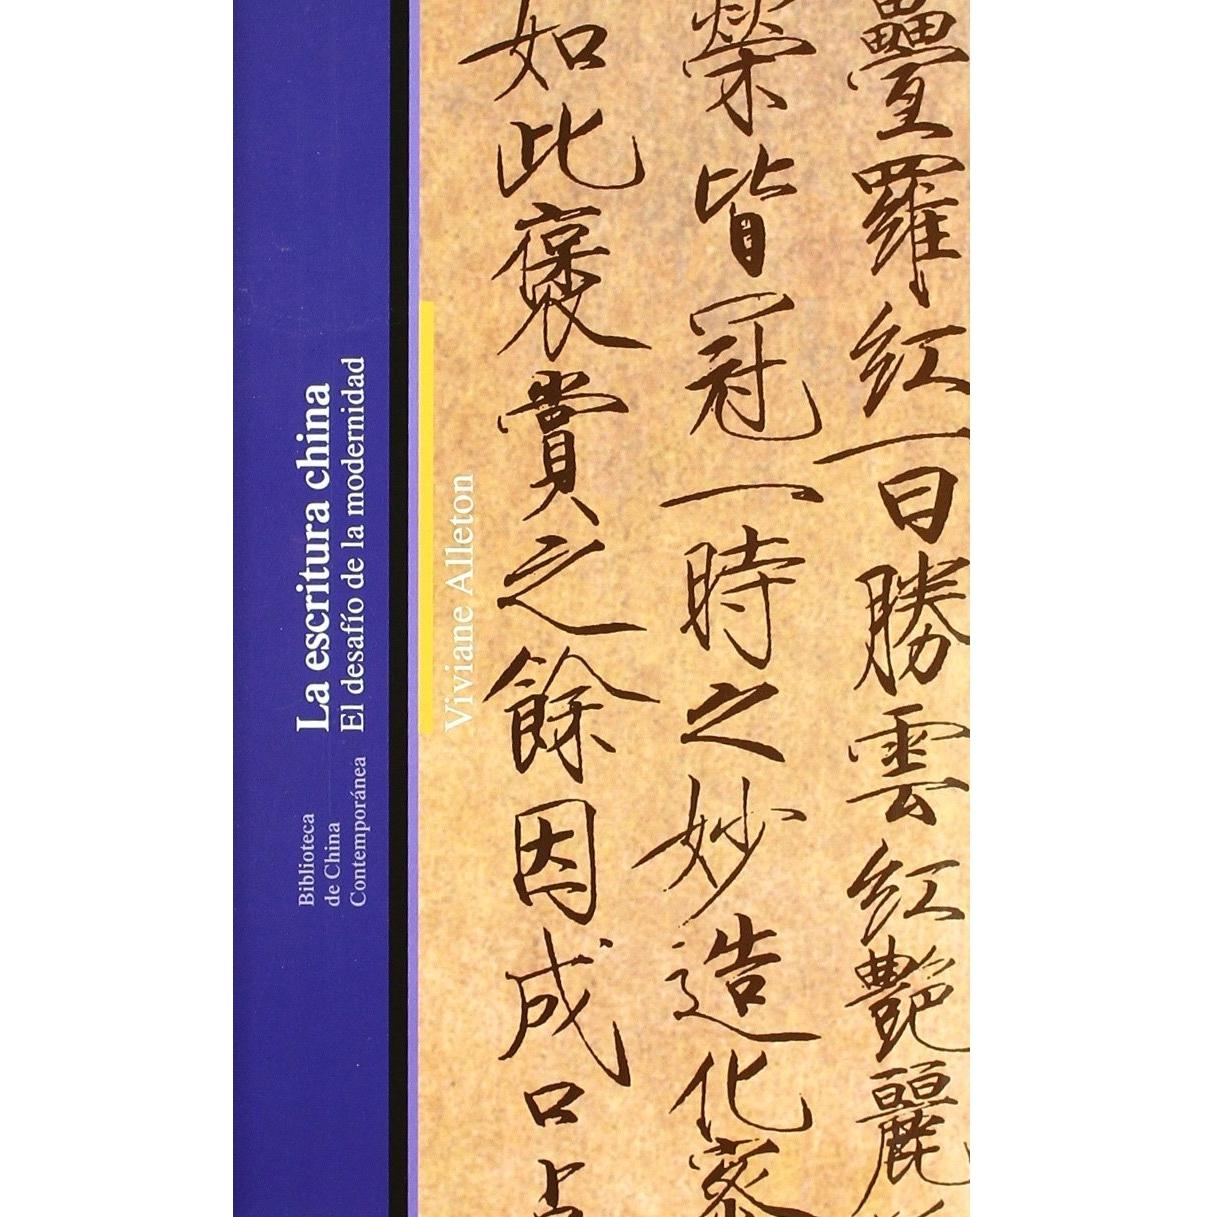 Biblioteca
de China
Contemporánea
La escritura china
El desafío de la modernidad
Viviane Alleton
疊羅紅一日勝雲紅艷麗
榮皆冠一時之妙造化密
如此褒賞之餘因成口占